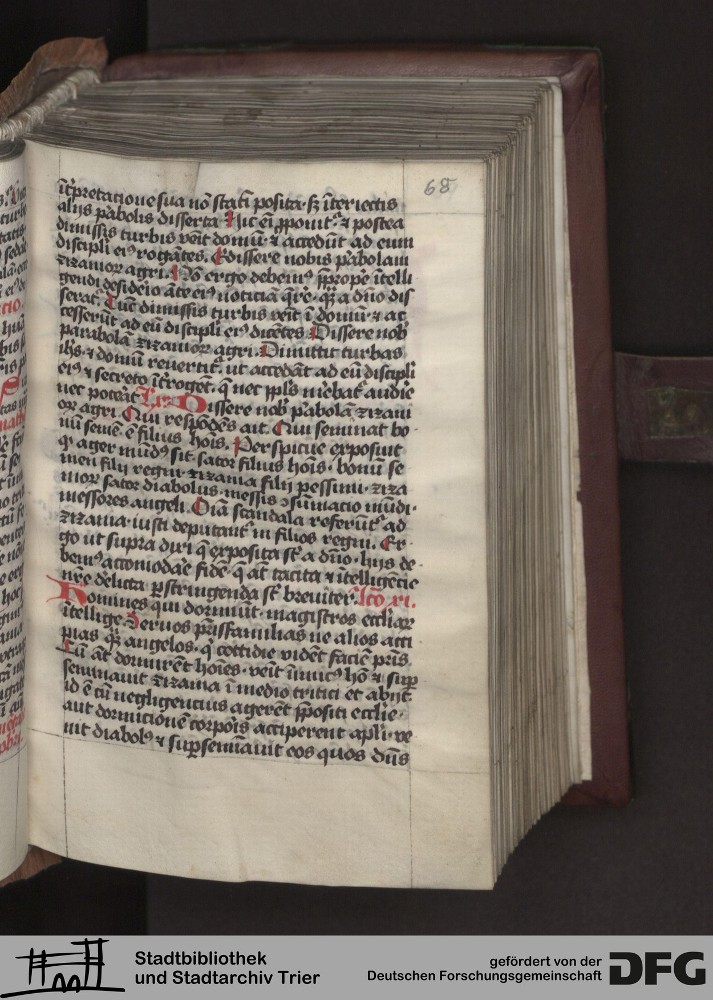 68
īt̄pretatione sua nō statī posita· sꝫ īteriectis
alijs pabolis disserta Hic eī ꝓponit᷑· ⁊ postea
dimissis turbis veīt domū· ⁊ accedūt ad eum
discipli eiꝰ rogātes. Edissere nobis pabolam
zizanioꝝ agri. Nō ergo debemꝰ p̄propē ītelli
gendi desideīo āte eiꝰ noticiā q̄re· q̄ a dn̄o dis
serat᷑. Tūc dimissis turbis veīt ī domū· ⁊ ac
cesserūt ad eū discipli eiꝰ dicētes Dissere nob̄
parabolā zizanioꝝ agri. Dimittit turbas
ih̄s· ⁊ domū revertit᷑· ut accedāt ad eū discipli
eiꝰ ⁊ secreto īt̄roget· q̄ nec ppl̄s audire
nec poterāt Dissere nob̄ pabolā zizani
oꝝ agri. Qui respōdēs ait. Qui seminat bo
nū semē· ē filius hoīs. Perspicue exposuit
qꝭ ager mūdꝰ sit· sator filius hoīs· bonū se
men filij regni· zizania filij pessimi· ziza
nioꝝ sator diabolus· messis ↄsūmacio mūdi·
messores angeli. Oīa scandala referūt᷑ ad
zizania· iusti deputant᷑ in filios regni. Er·
go ut supra dixi q̄ exposita st̄ a dn̄o· hijs de·
bemꝰ accomodare fidē· q̄ āt tacita ⁊ ītelligēcie
nr̄e delicta pstringenda st̄ breviter· lc̄o xi.
Homines qui dormiūt· magistros ecc̄liaꝝ
ītellige. Servos pr̄isfamilias ne alios acci
pias q̄ angelos· q̄ cottidie vidēt faciē pr̄is.
Cū āt dormirēt hoīes· veīt īimicꝰ hō ⁊ sup
seminavit zizania ī medio tritici et abijt·
id ē cū negligencius agerēt ꝓpositi ecc̄lie·
aut dormicionē corpōis acciperent apl̄i· ve
nit diabolꝰ ⁊ supseminavit eos quos dn̄s
Stadtbibliothek
und Stadtarchiv Trier
gefördert von der
Deutschen Forschungsgemeinschaft
DFG